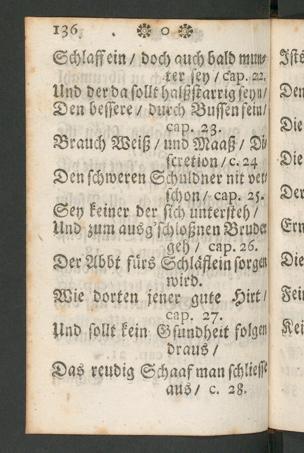 136. ❁ o ❁
Schlaff ein / doch auch bald mun-
ter sey / cap. 22.
Und der da sollt halßstarrig seyn /
Den bessere / durch Bussen fein /
cap. 23.
Brauch Weiß / und Maaß / Di-
scretion / c. 24
Den schweren Schuldner nit ver-
schon / cap. 25.
Sey keiner der sich untersteh /
Und zum ausg'schloßnen Bruder
geh / cap. 26.
Der Abbt fürs Schäflein sorgen
wird.
Wie dorten jener gute Hirt /
cap. 27.
Und sollt kein Gsundheit folgen
draus /
Das reudig Schaaf man schliesse
aus / c. 28.
Den
Die
Der
Die
Fein
Kei